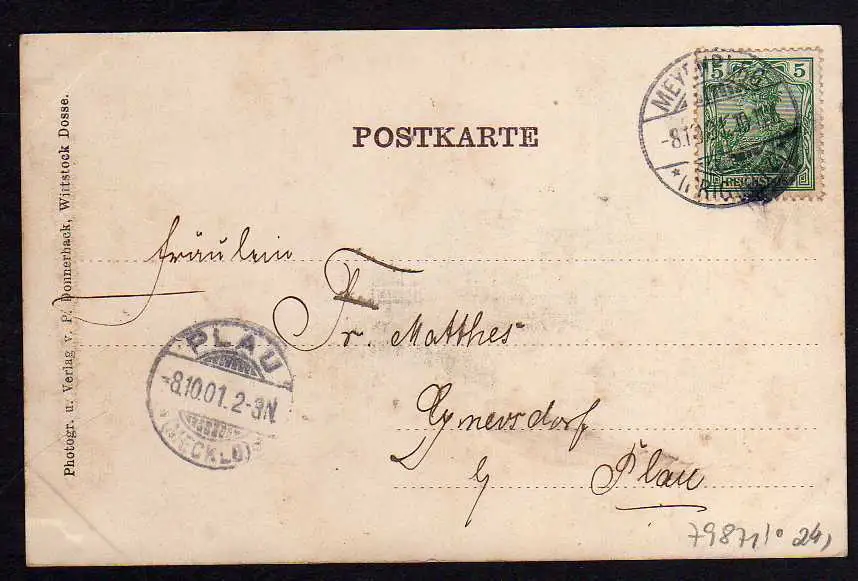 POSTKARTE
5 5
MEYENBURG
-8.10.01. 10-11V.
REICHSPOST
Fräulein
Fr. Matthes
b/
Plau
PLAU
-8.10.01. 2-3N.
(MECKLB)
Photogr. u. Verlag v. P. Donnerhack, Wittstock Dosse.
79871 24,